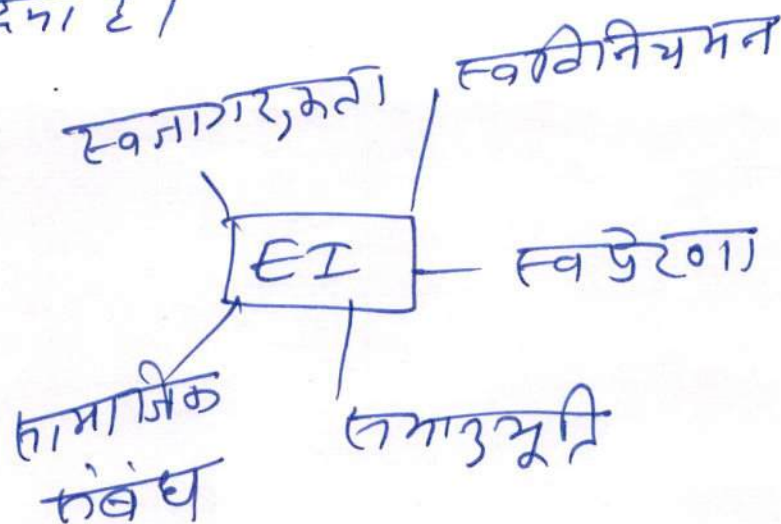 दिया है।
स्वजागरूकता
स्वविनियमन
EI
स्वप्रेरणा
सामाजिक
संबंध
समानुभूति